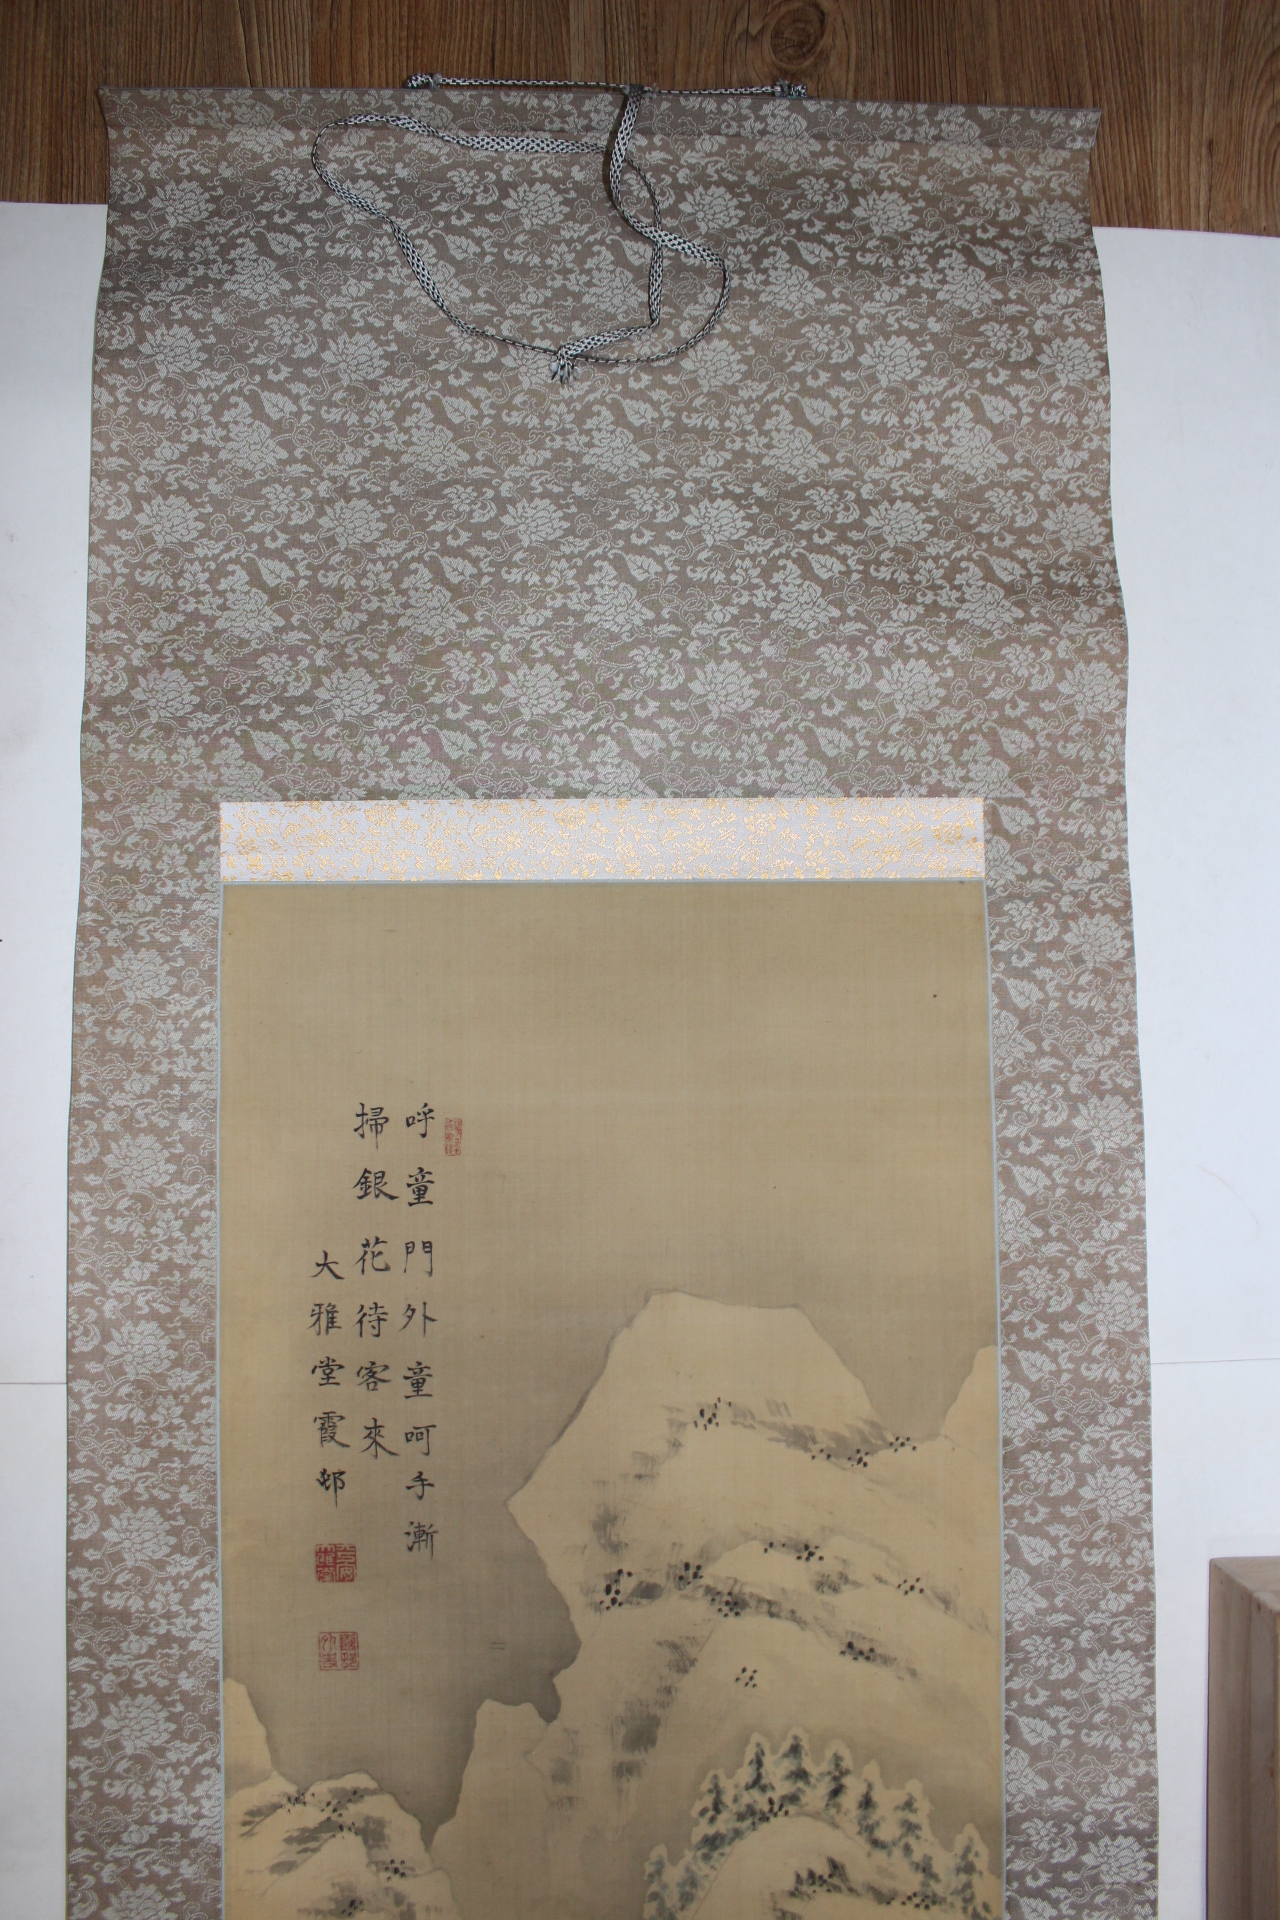 呼童門外童呵手漸
掃銀花待客來
大雅堂霞邨